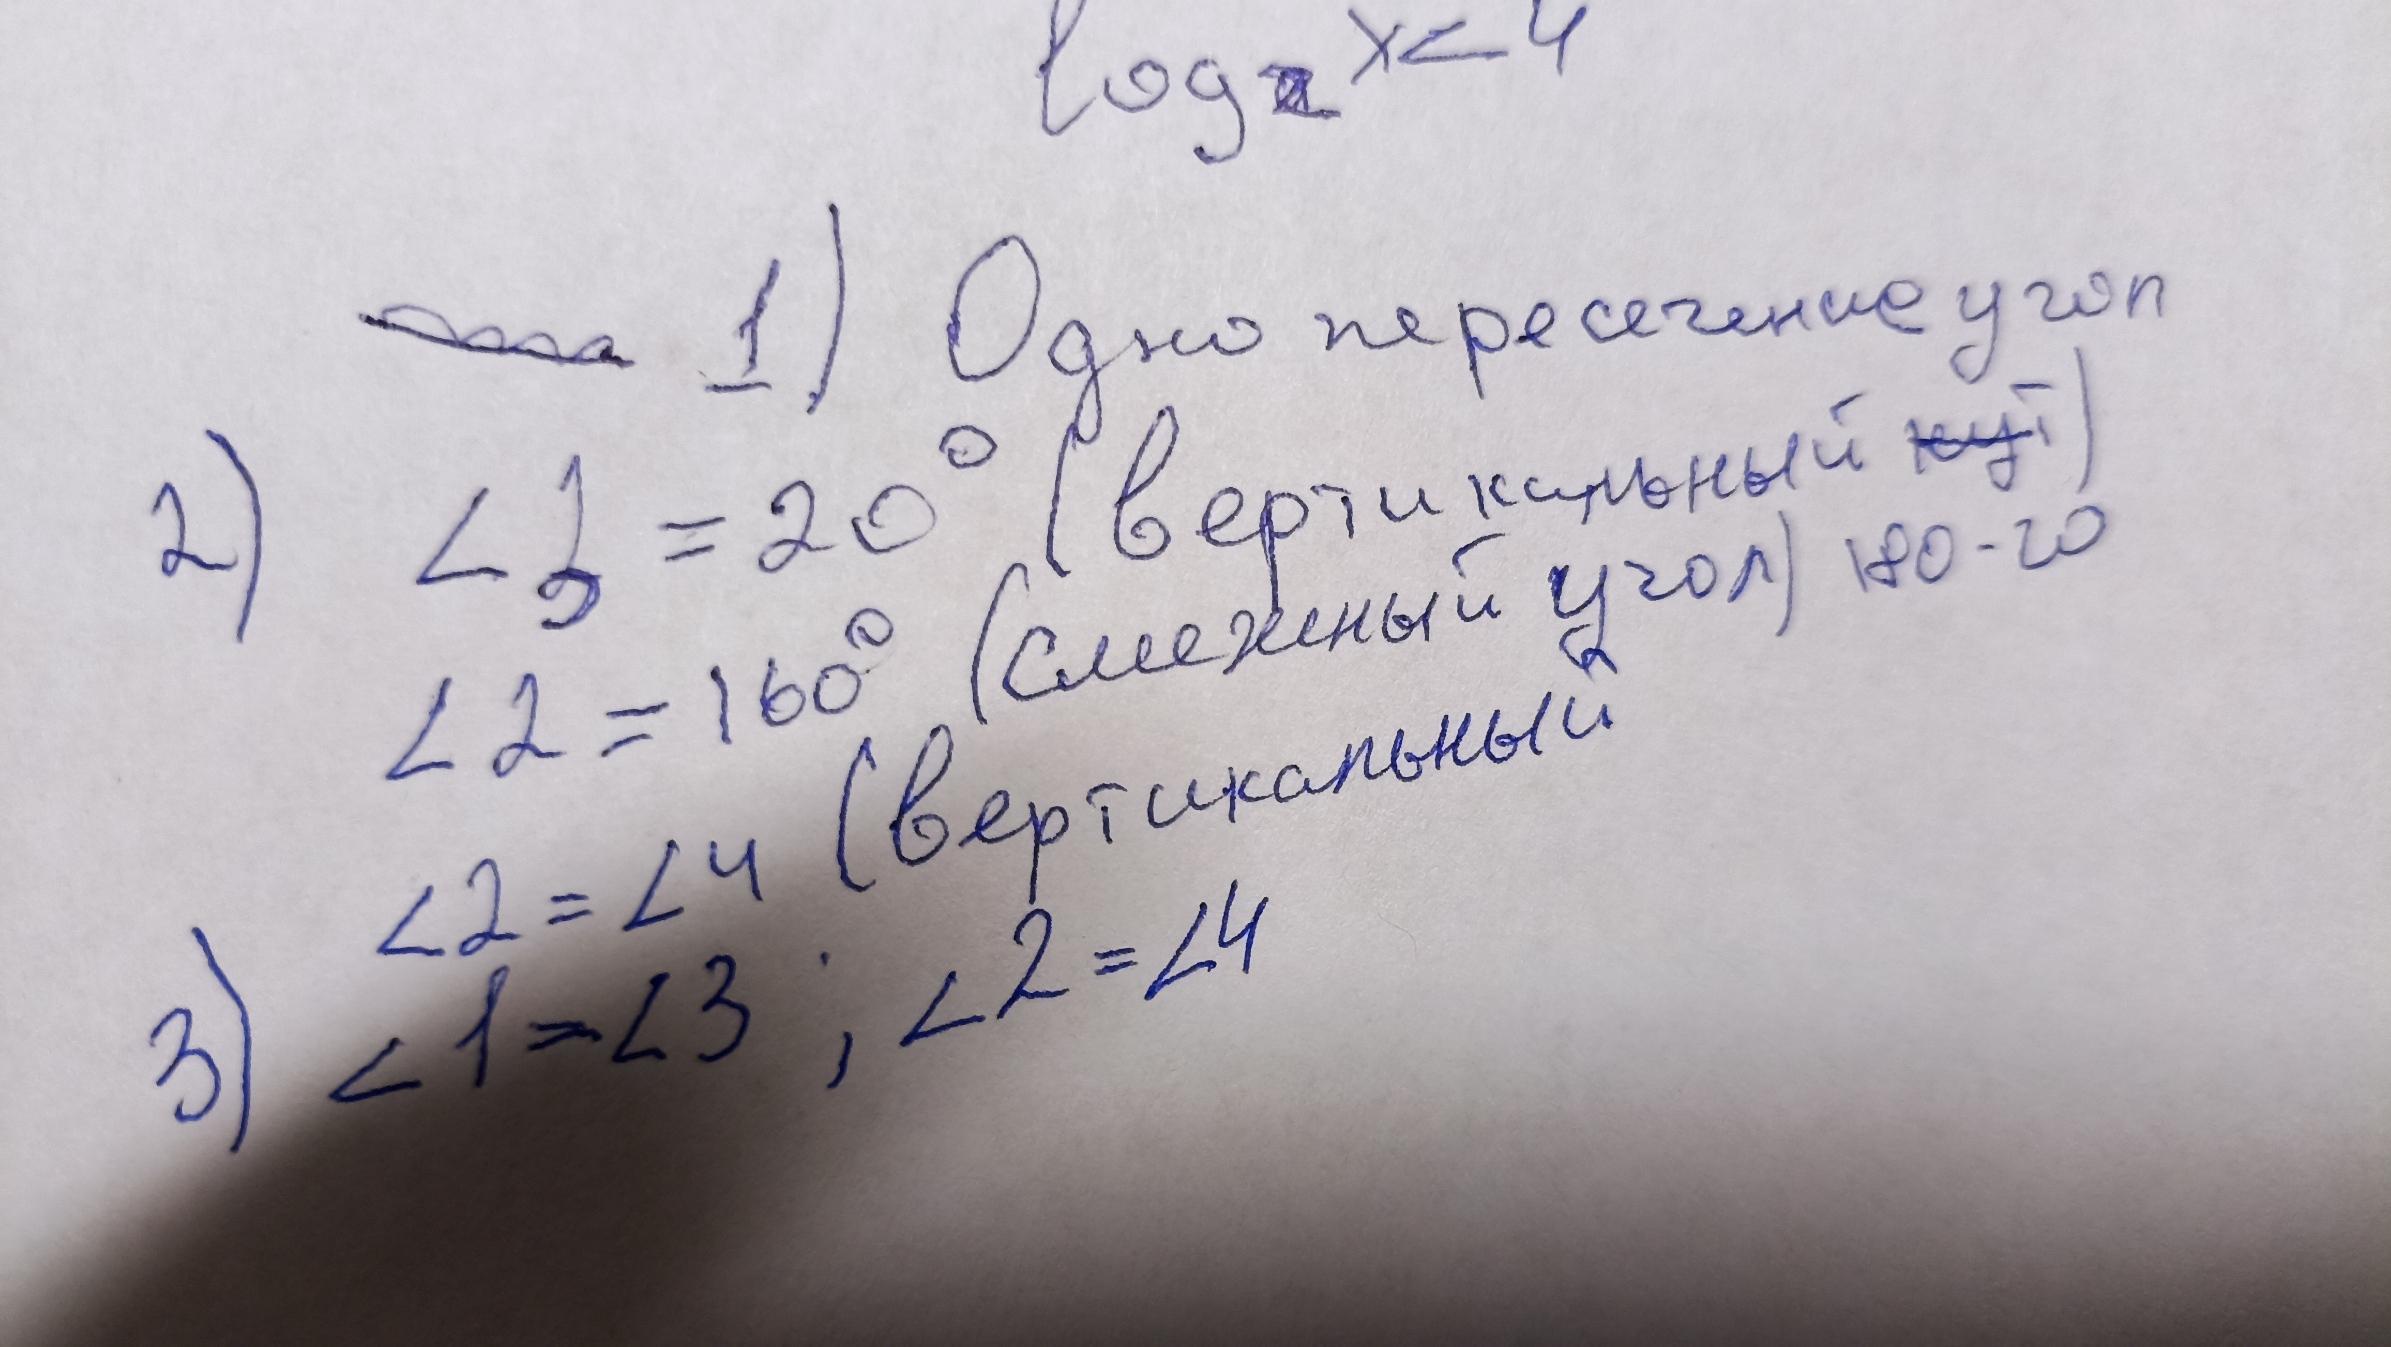 log₂ x < 4
1) Одно пересечение угол
2) ∠3 = 20° (вертикальный кут)
∠2 = 160° (смежный угол) 180-20
∠2 = ∠4 (вертикальный
3) ∠1 = ∠3 ; ∠2 = ∠4